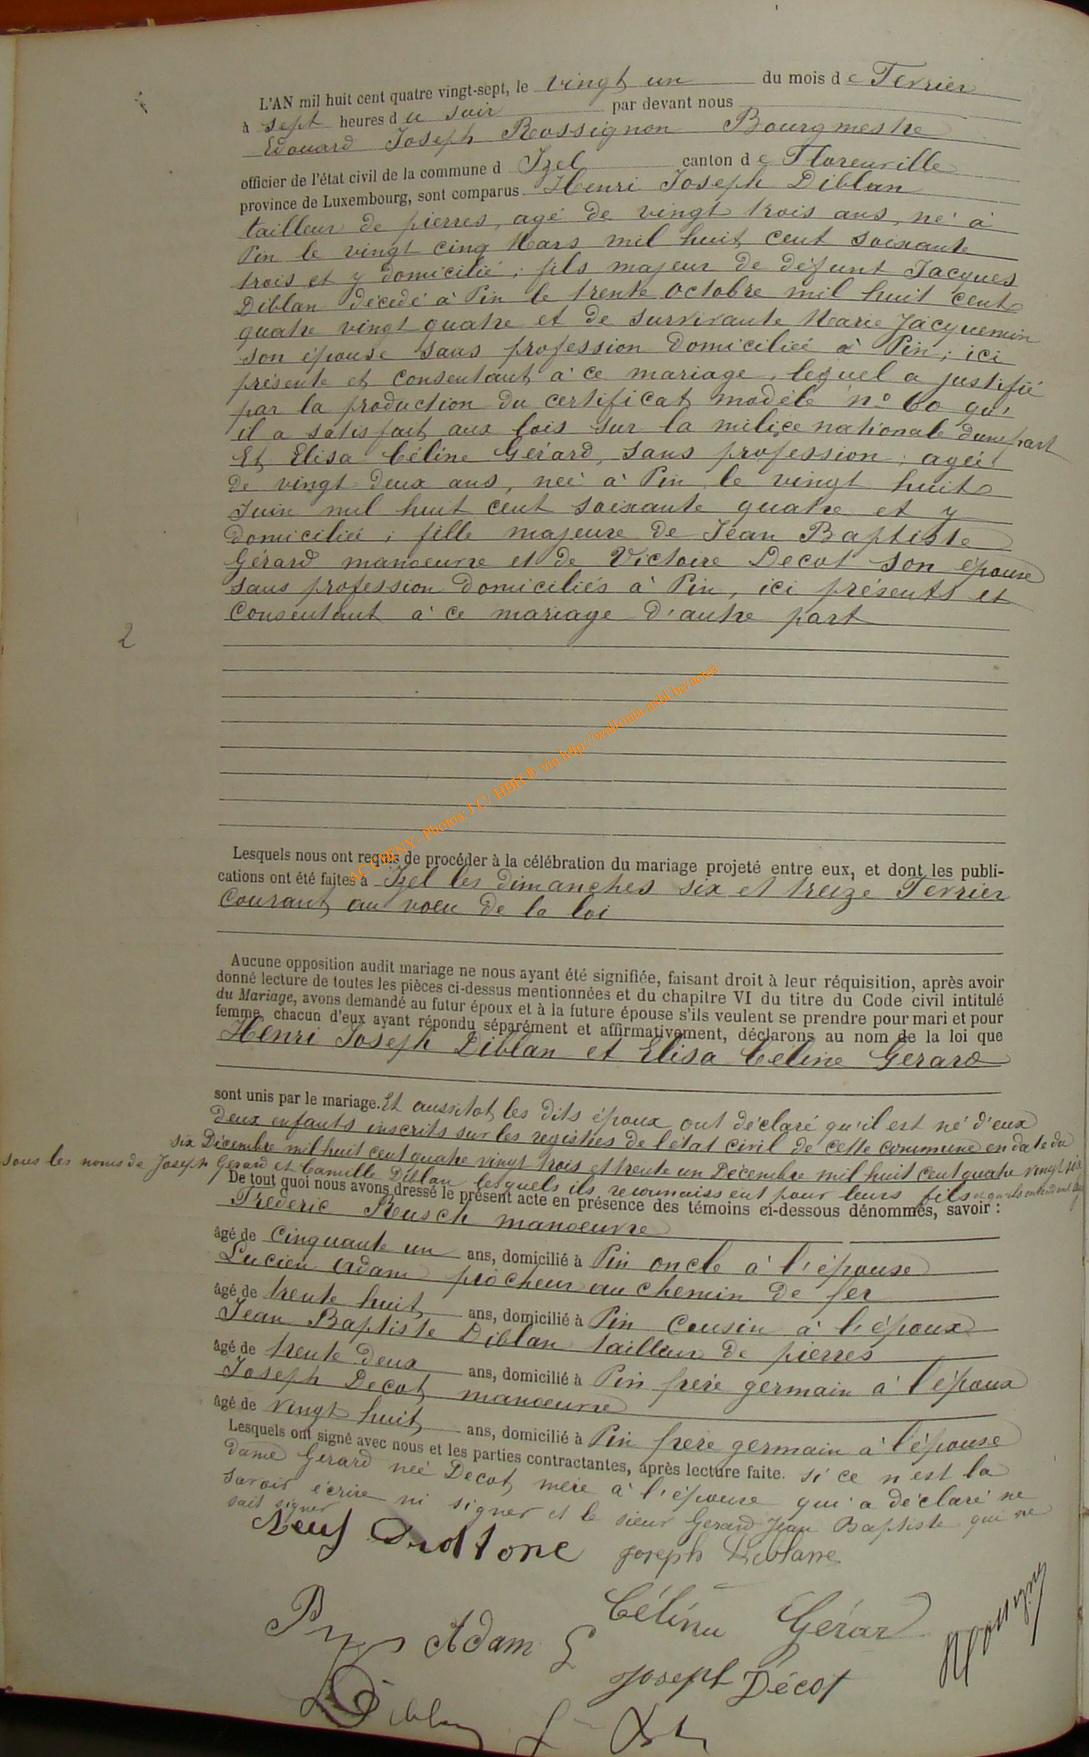 L'AN mil huit cent quatre vingt-sept, le vingt un du mois de Fevrier
à sept heures du soir par devant nous
Edouard Joseph Rossignon Bourgmestre
officier de l'état civil de la commune d Izel canton de Florenville
province de Luxembourg, sont comparus Henri Joseph Diblan
tailleur de pierres, agé de vingt trois ans, né à
Pin le vingt cinq Mars mil huit cent soixante
trois et y domicilié ; fils majeur de défunt Jacques
Diblan décédé à Pin le trente octobre mil huit cent
quatre vingt quatre et de survivante Marie Jacquemin
son épouse sans profession domiciliée à Pin ; ici
présente et consentant à ce mariage, lequel a justifié
par la production du certificat modèle n° 60 qu'
il a satisfait aux lois sur la milice nationale d'une part
Et Elisa Céline Gérard, sans profession, agée
de vingt deux ans, née à Pin le vingt huit
Juin mil huit cent soixante quatre et y
domiciliée ; fille majeure de Jean Baptiste
Gérard manoeuvre et de Victoire Decot son épouse
sans profession domiciliés à Pin, ici présents et
consentant à ce mariage d'autre part
2
Lesquels nous ont requis de procéder à la célébration du mariage projeté entre eux, et dont les publi-
cations ont été faites à Izel les dimanches six et treize Fevrier
courant au voeu de la loi
Aucune opposition audit mariage ne nous ayant été signifiée, faisant droit à leur réquisition, après avoir
donné lecture de toutes les pièces ci-dessus mentionnées et du chapitre VI du titre du Code civil intitulé
du Mariage, avons demandé au futur époux et à la future épouse s'ils veulent se prendre pour mari et pour
femme, chacun d'eux ayant répondu séparément et affirmativement, déclarons au nom de la loi que
Henri Joseph Diblan et Elisa Celine Gerard
sont unis par le mariage. Et aussitot les dits époux ont déclaré qu'il est né d'eux
deux enfants inscrits sur les registres de l'état civil de cette commune en date du
six Décembre mil huit cent quatre vingt trois et trente un Decembre mil huit cent quatre vingt six
sous les noms de Joseph Gérard et Camille Diblan lesquels ils reconnaissent pour leurs fils
De tout quoi nous avons dressé le présent acte en présence des témoins ci-dessous dénommés, savoir :
Fréderic Reusch manoeuvre
âgé de cinquante un ans, domicilié à Pin oncle à l'épouse
Lucien Adam piocheur au chemin de fer
âgé de trente huit ans, domicilié à Pin Cousin à l'époux
Jean Baptiste Diblan tailleur de pierres
âgé de trente deux ans, domicilié à Pin frère germain à l'époux
Joseph Decot manoeuvre
âgé de vingt huit ans, domicilié à Pin frère germain à l'épouse
Lesquels ont signé avec nous et les parties contractantes, après lecture faite. si ce n'est la
dame Gerard née Decot, mère à l'épouse qui a déclaré ne
savoir écrire ni signer et le sieur Gerard Jean Baptiste qui ne
sait signer
Neuf
Joseph Diblanc
Céline Gérard
Adam L
Joseph Décot
Diblan